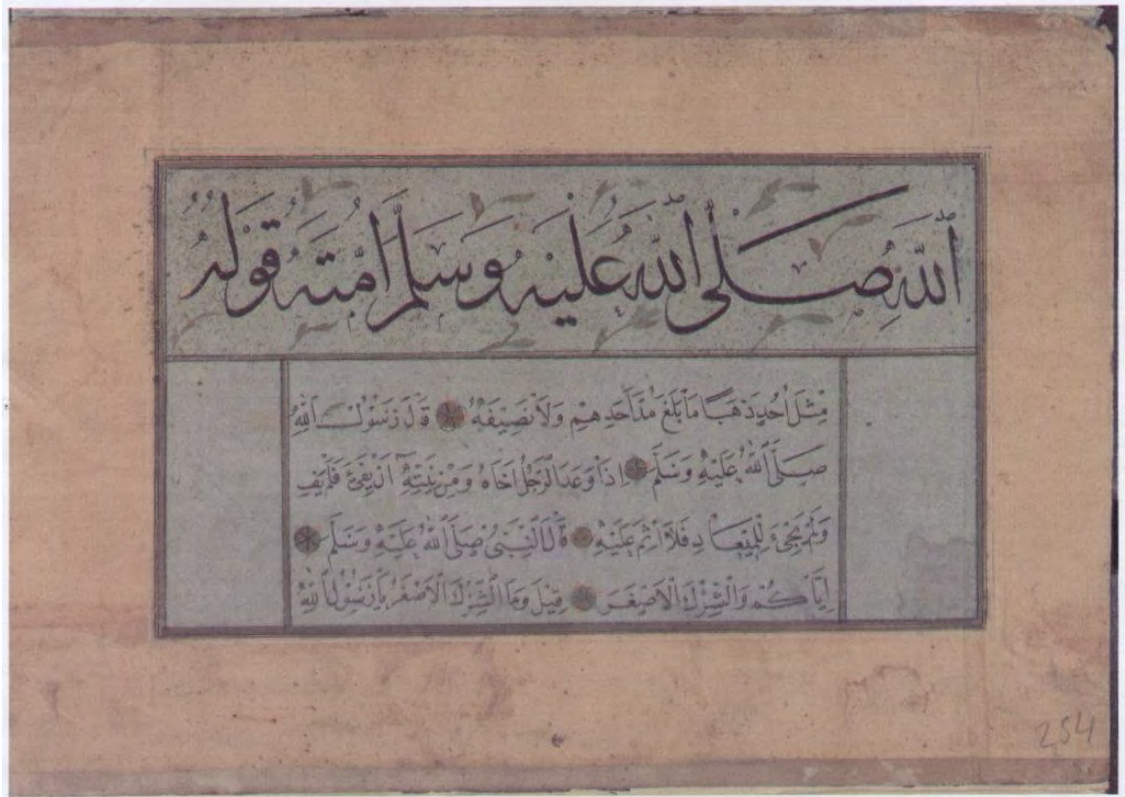 اللهِ صَلَّى اللهُ عَلَيْهِ وَسَلَّمَ امَّتَهُ قَوْلُهُ
مِثْلَ اُحُدٍ ذَهَبًا مَا بَلَغَ مُدَّ اَحَدِهِمْ وَلَا نَصِيفَهُ قَالَ رَسُولُ اللهِ
صَلَّى اللهُ عَلَيْهِ وَسَلَّمَ اِذَا وَعَدَ الرَّجُلُ اَخَاهُ وَمِنْ نِيَّتِهِ اَنْ يَفِىَ فَلَمْ يَفِ
وَلَمْ يَجِئْ لِلْمِيعَادِ فَلَا اِثْمَ عَلَيْهِ قَالَ النَّبِىُّ صَلَّى اللهُ عَلَيْهِ وَسَلَّمَ
اِيَّاكُمْ وَالشِّرْكَ الْاَصْغَرَ قِيلَ وَمَا الشِّرْكُ الْاَصْغَرُ يَا رَسُولَ اللهِ
254